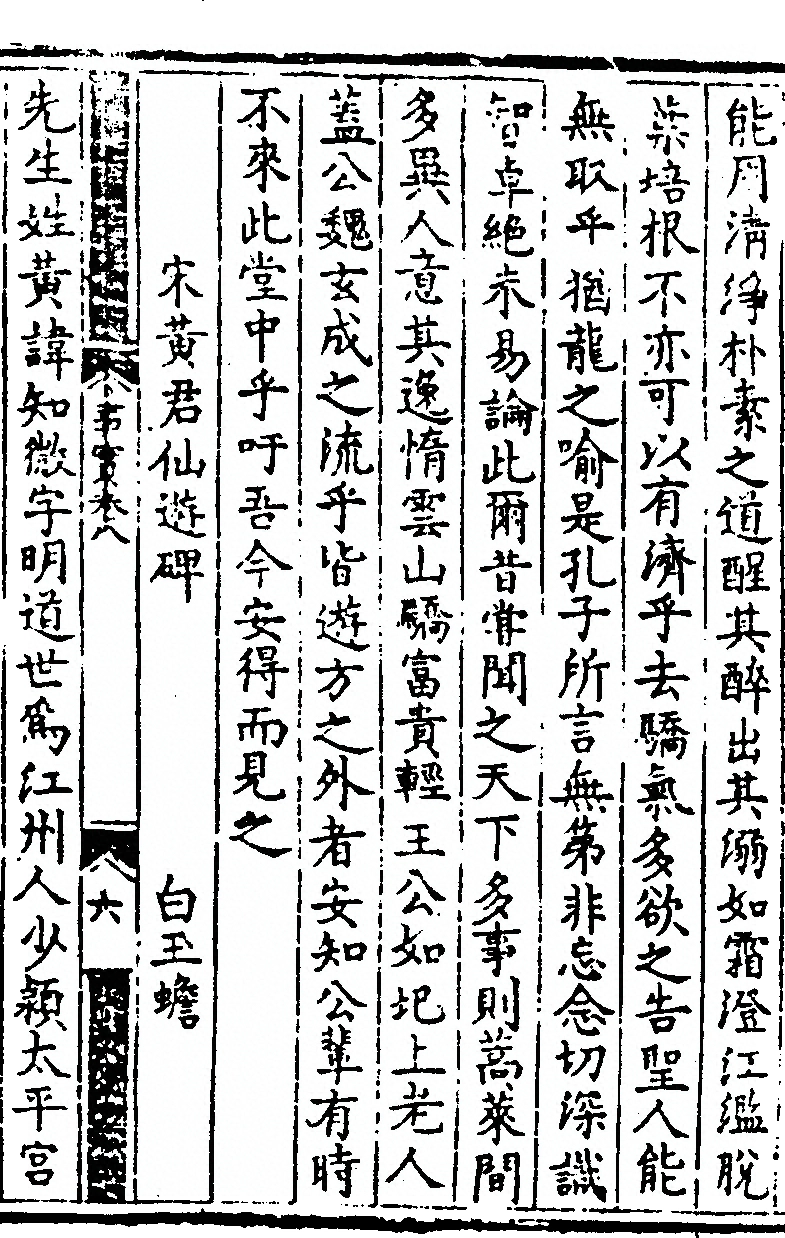 能用清淨朴素之道醒其醉出其溺如霜澄江濫脫
葉培根不亦可以有濟乎去驕氣多欲之告聖人能
無取乎猶龍之喻是孔子所言無第非忘念切深識
智卓絕未易論此爾昔甞聞之天下多事則蒿萊間
多異人意其逸惰雲山驕富貴輕王公如圯上老人
蓋公魏玄成之流乎皆遊方之外者安知公輩有時
不來此堂中乎吁吾今安得而見之
宋黃君仙遊碑
白玉蟾
事實卷八
六
先生姓黃諱知微字明道世爲江州人少穎太平宮